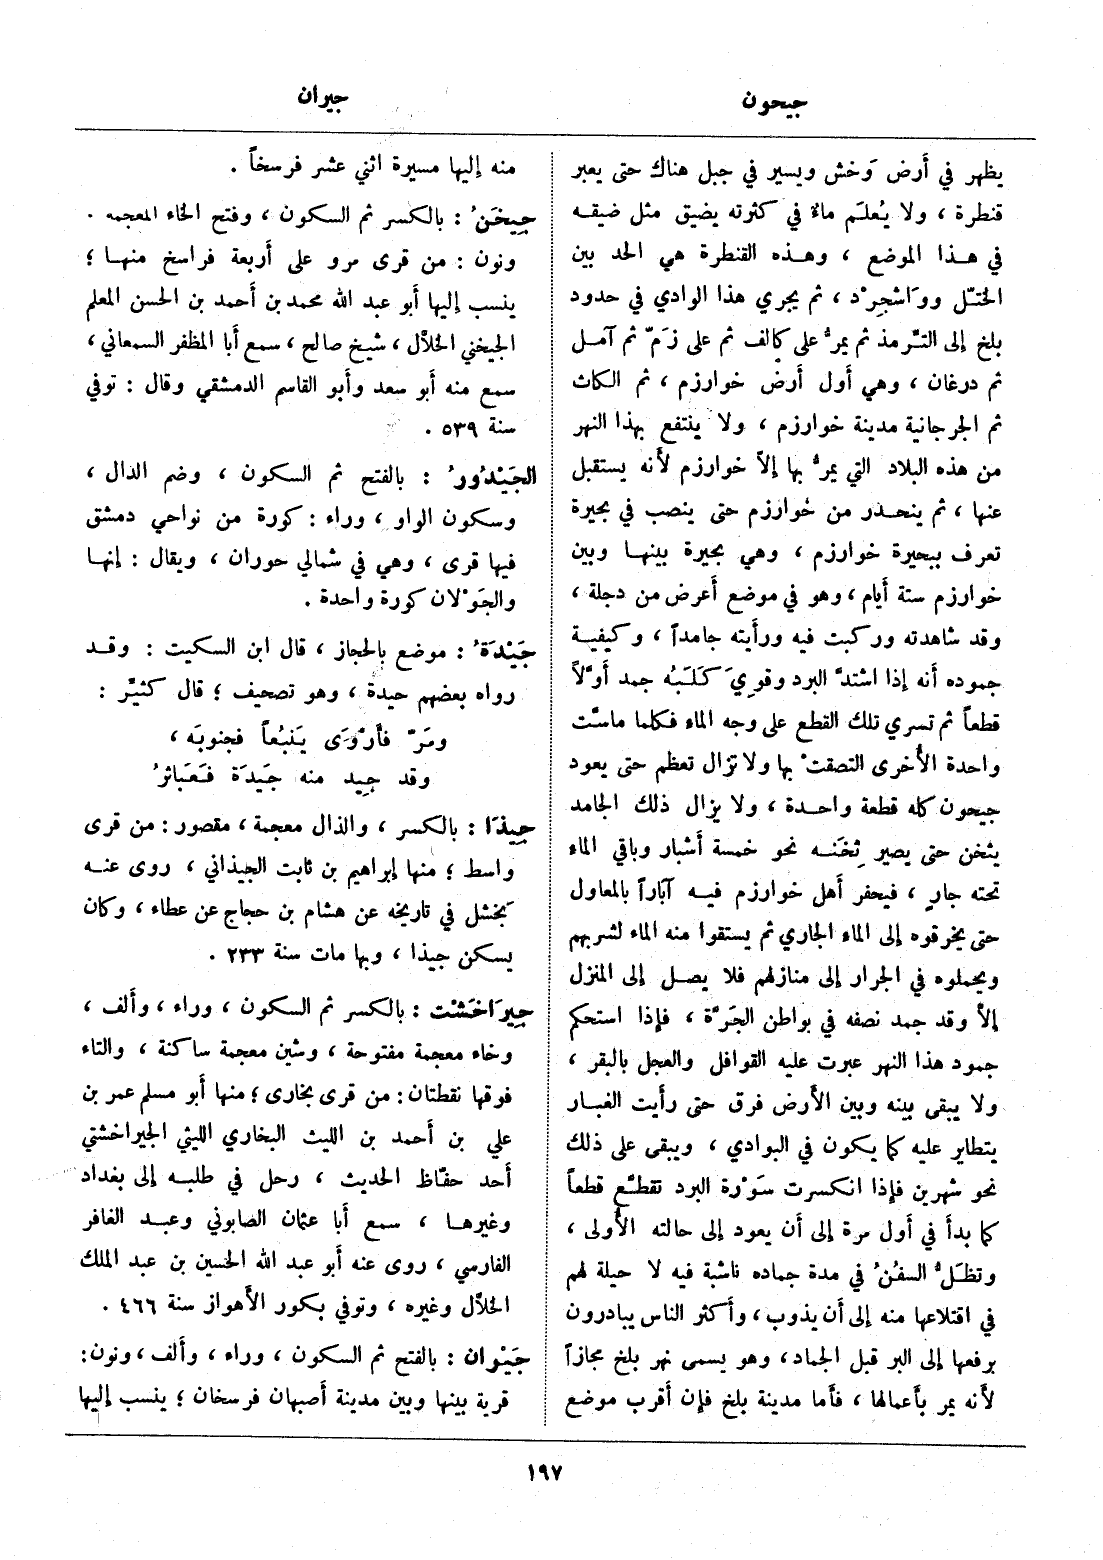 جيحون
جيران
يظهر في أرض وَخش ويسير في جبل هناك حتى يعبر
قنطرة ، ولا يُعلَم ماءٌ في كثرته يضيق مثل ضيقه
في هذا الموضع ، وهذه القنطرة هي الحد بين
الختّل وواشْجِرْد ، ثم يجري هذا الوادي في حدود
بلخ إلى التّرمذ ثم يمرُّ على كالف ثم على زَمّ ثم آمل
ثم درغان ، وهي أول أرض خوارزم ، ثم الكاث
ثم الجرجانية مدينة خوارزم ، ولا ينتفع بهذا النهر
من هذه البلاد التي يمرُّ بها إلاّ خوارزم لأنه يستقبل
عنها ، ثم ينحدر من خُوارزم حتى ينصب في بحيرة
تعرف ببحيرة خوارزم ، وهي بحيرة بينها وبين
خوارزم ستة أيام ، وهو في موضع أعرض من دجلة ،
وقد شاهدته وركبت فيه ورأيته جامداً ، وكيفية
جموده أنه إذا اشتدَّ البرد وقويَ كَلَبُه جمد أوّلاً
قطعاً ثم تسري تلك القطع على وجه الماء فكلما ماسّت
واحدة الأُخرى التصقتْ بها ولا تزال تعظم حتى يعود
جيحون كله قطعة واحدة ، ولا يزال ذلك الجامد
يثخن حتى يصير ثِخَنه نحو خمسة أشبار وباقي الماء
تحته جارٍ ، فيحفر أهل خوارزم فيه آباراً بالمعاول
حتى يخرقوه إلى الماء الجاري ثم يستقوا منه الماء لشربهم
ويحملوه في الجرار إلى منازلهم فلا يصل إلى المنزل
إلاّ وقد جمد نصفه في بواطن الجَرّة ، فإذا استحكم
جمود هذا النهر عبرت عليه القوافل والعجل بالبقر ،
ولا يبقى بينه وبين الأرض فرق حتى رأيت الغبار
يتطاير عليه كما يكون في البوادي ، ويبقى على ذلك
نحو شهرين فإذا انكسرت سَوْرة البرد تقطّع قطعاً
كما بدأ في أول مرة إلى أن يعود إلى حالته الأولى ،
وتظَلُّ السفُنُ في مدة جماده ناشبة فيه لا حيلة لهم
في اقتلاعها منه إلى أن يذوب ، وأكثر الناس يبادرون
برفعها إلى البر قبل الجماد ، وهو يسمى نهر بلخ مجازاً
لأنه يمر بأعمالها ، فأما مدينة بلخ فإن أقرب موضع
منه إليها مسيرة اثني عشر فرسخاً .
جِيخَنُ : بالكسر ثم السكون ، وفتح الخاء المعجمه .
ونون : من قرى مرو على أربعة فراسخ منها ؛
ينسب إليها أبو عبد الله محمد بن أحمد بن الحسن المعلم
الجيخني الخلاّل ، شيخ صالح ، سمع أبا المظفر السمعاني ،
سمع منه أبو سعد وأبو القاسم الدمشقي وقال : توفي
سنة ٥٣٩ .
الجَيْدُورُ : بالفتح ثم السكون ، وضم الدال ،
وسكون الواو ، وراء : كورة من نواحي دمشق
فيها قرى ، وهي في شمالي حوران ، ويقال : إنها
والجَوْلان كورة واحدة .
جَيْدَةُ : موضع بالحجاز ، قال ابن السكيت : وقد
رواه بعضهم حيدة ، وهو تصحيف ؛ قال كثيّر :
ومَرّ فأرْوَى يَنبُعاً فجنوبَه ،
وقد جِيد منه جَيدَة فعَباثرُ
جِيذَا : بالكسر ، والذال معجمة ، مقصور : من قرى
واسط ؛ منها إبراهيم بن ثابت الجيذاني ، روى عنه
بَخشل في تاريخه عن هشام بن حجاج عن عطاء ، وكان
يسكن جيذا ، وبها مات سنة ٢٣٣ .
جِيرَاخَشْت : بالكسر ثم السكون ، وراء ، وألف ،
وخاء معجمة مفتوحة ، وشين معجمة ساكنة ، والتاء
فوقها نقطتان : من قرى بخارى ؛ منها أبو مسلم عمر بن
علي بن أحمد بن الليث البخاري الليثي الجيراخشتي
أحد حفّاظ الحديث ، رحل في طلبه إلى بغداد
وغيرها ، سمع أبا عثمان الصابوني وعبد الغافر
الفارسي ، روى عنه أبو عبد الله الحسين بن عبد الملك
الخلاّل وغيره ، وتوفي بكور الأهواز سنة ٤٦٦ .
جَيْران : بالفتح ثم السكون ، وراء ، وألف ، ونون :
قرية بينها وبين مدينة أصبهان فرسخان ؛ ينسب إليها
١٩٧